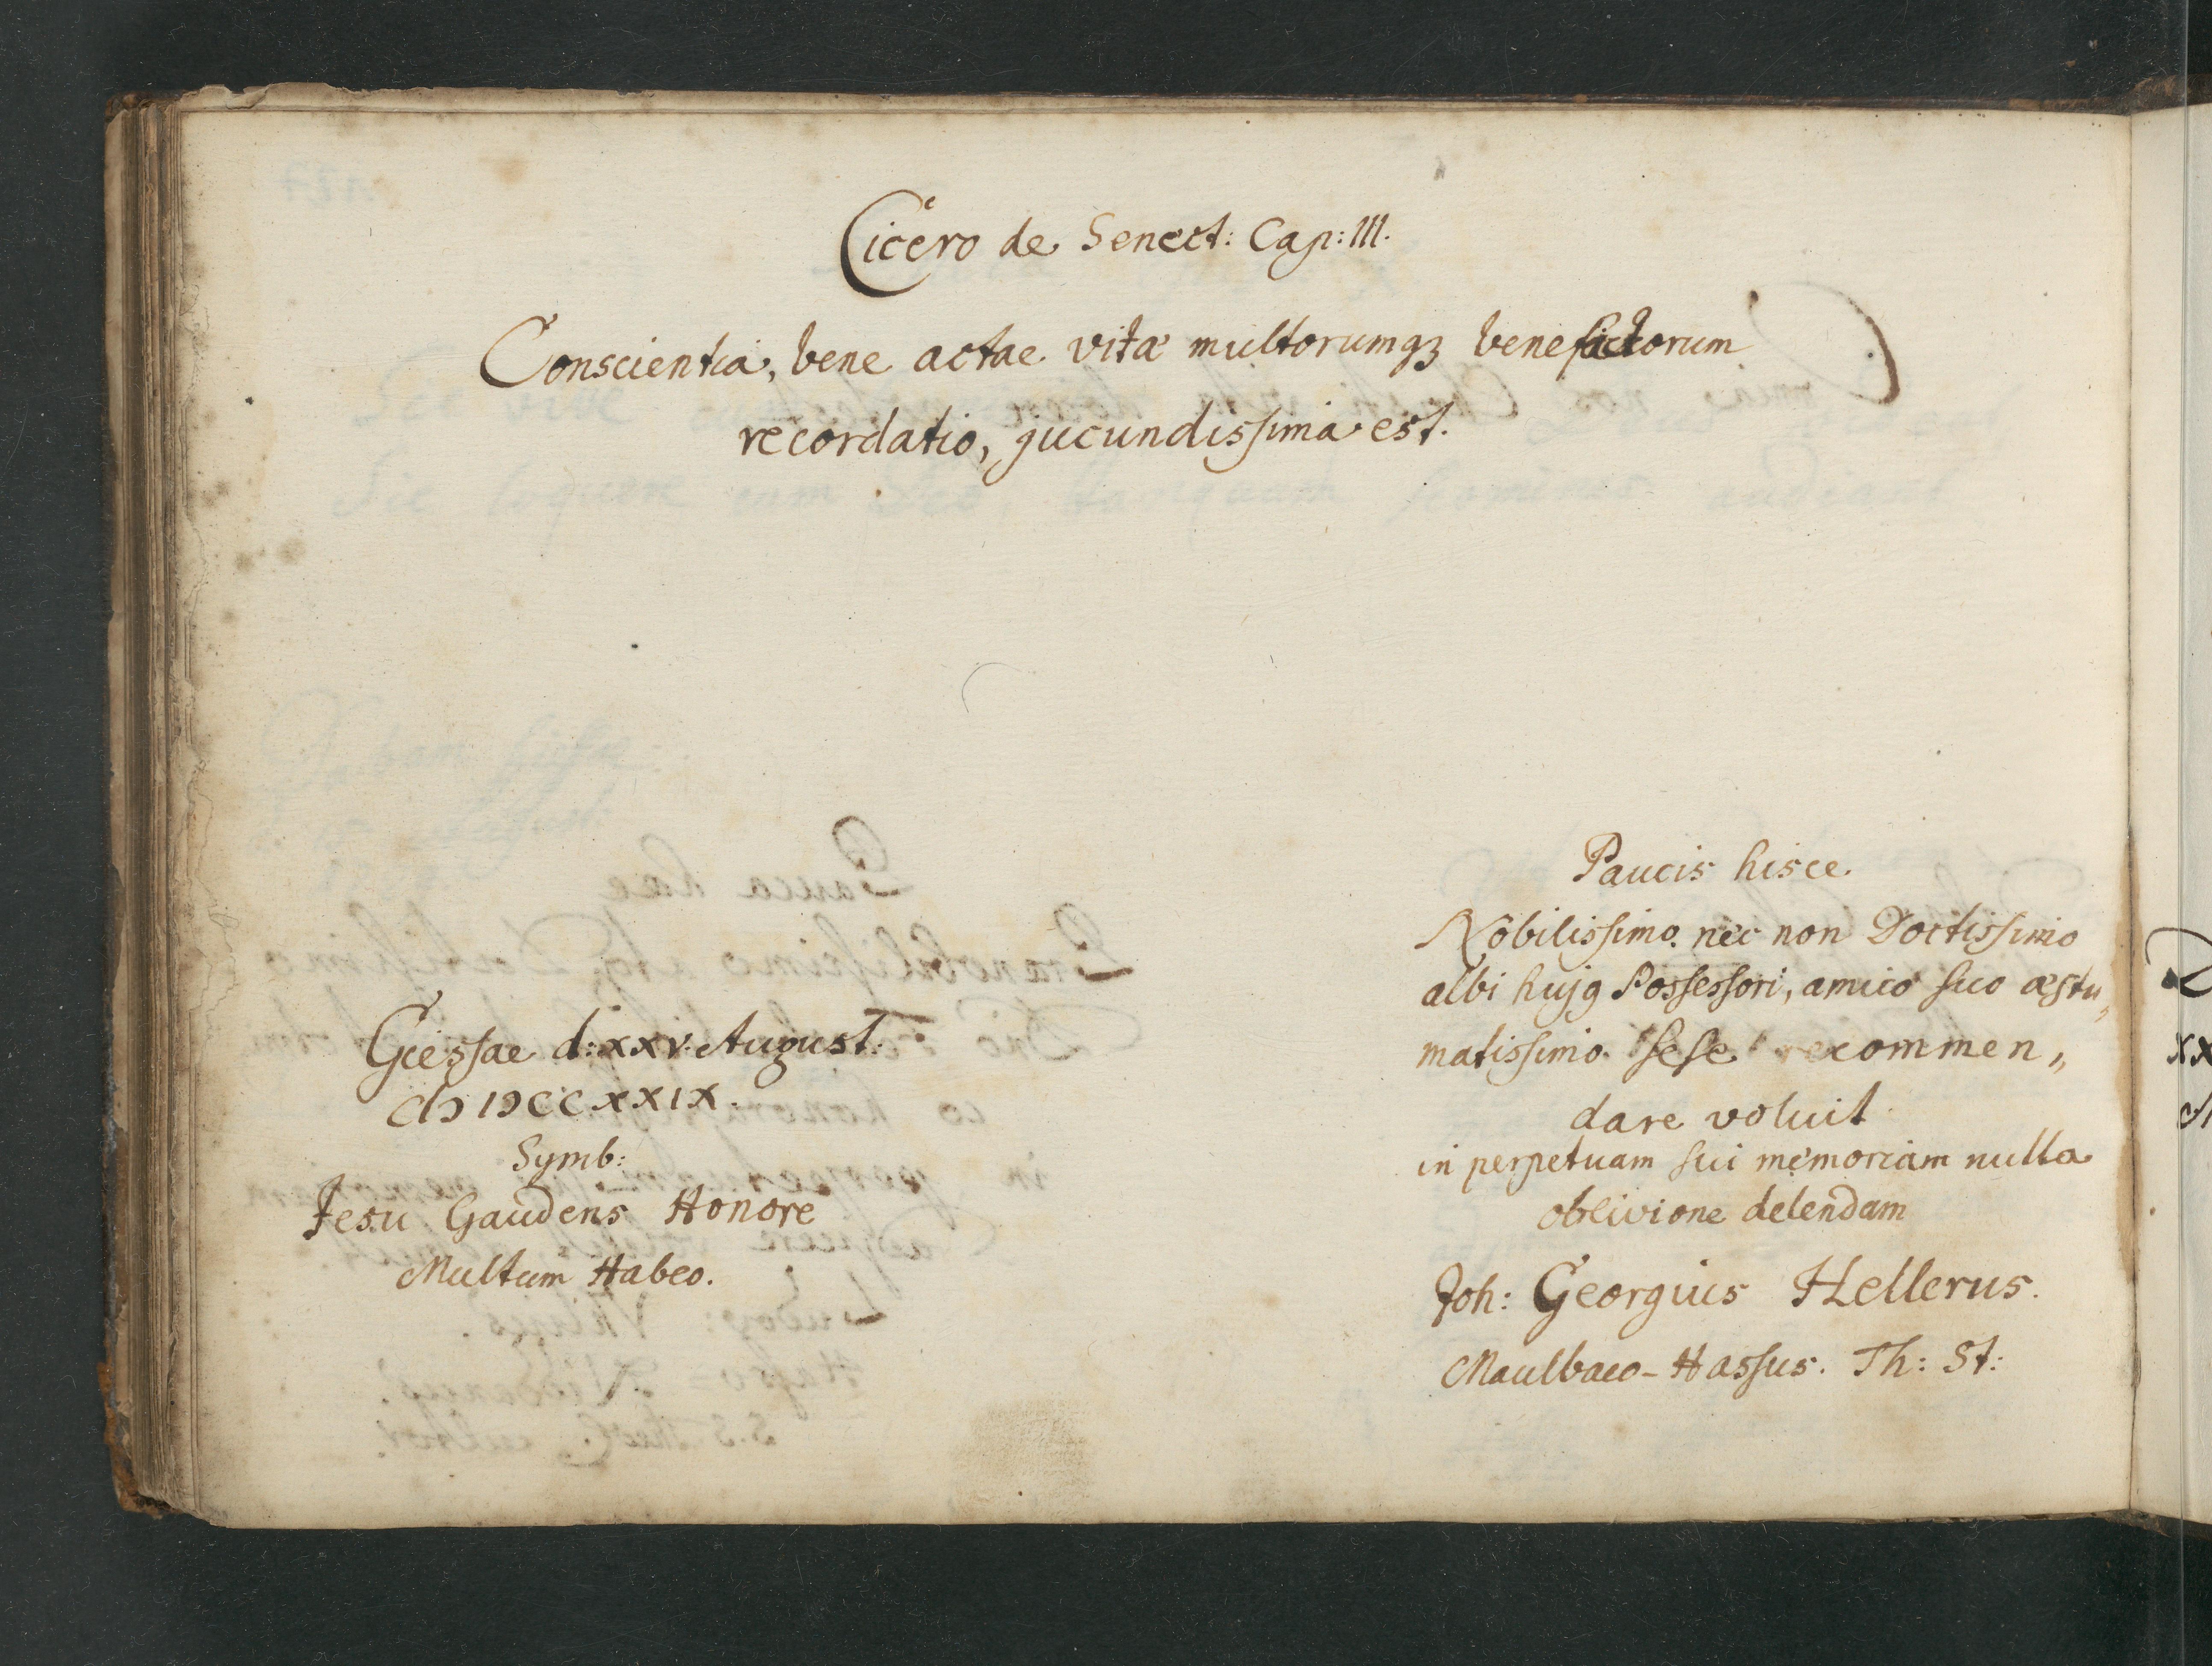 Cicero de Senect: Cap: III.
Conscientia, bene actae vitæ multorumqꝫ benefactorum
recordatio, jucundissima est.
Giessae d: XXV. August:
CIↃ IↃCCXXIX.
Symb:
Jesu Gaudens Honore
Multum Habeo.
Paucis hisce
Nobilissimo nec non Doctissimo
albi hujꝯ Possessori, amico suo æstu„
matissimo sese recommen„
dare voluit
in perpetuam sui memoriam nulla
oblivione delendam
Joh: Georgius Hellerus.
Maulbaco-Hassus. Th: St: